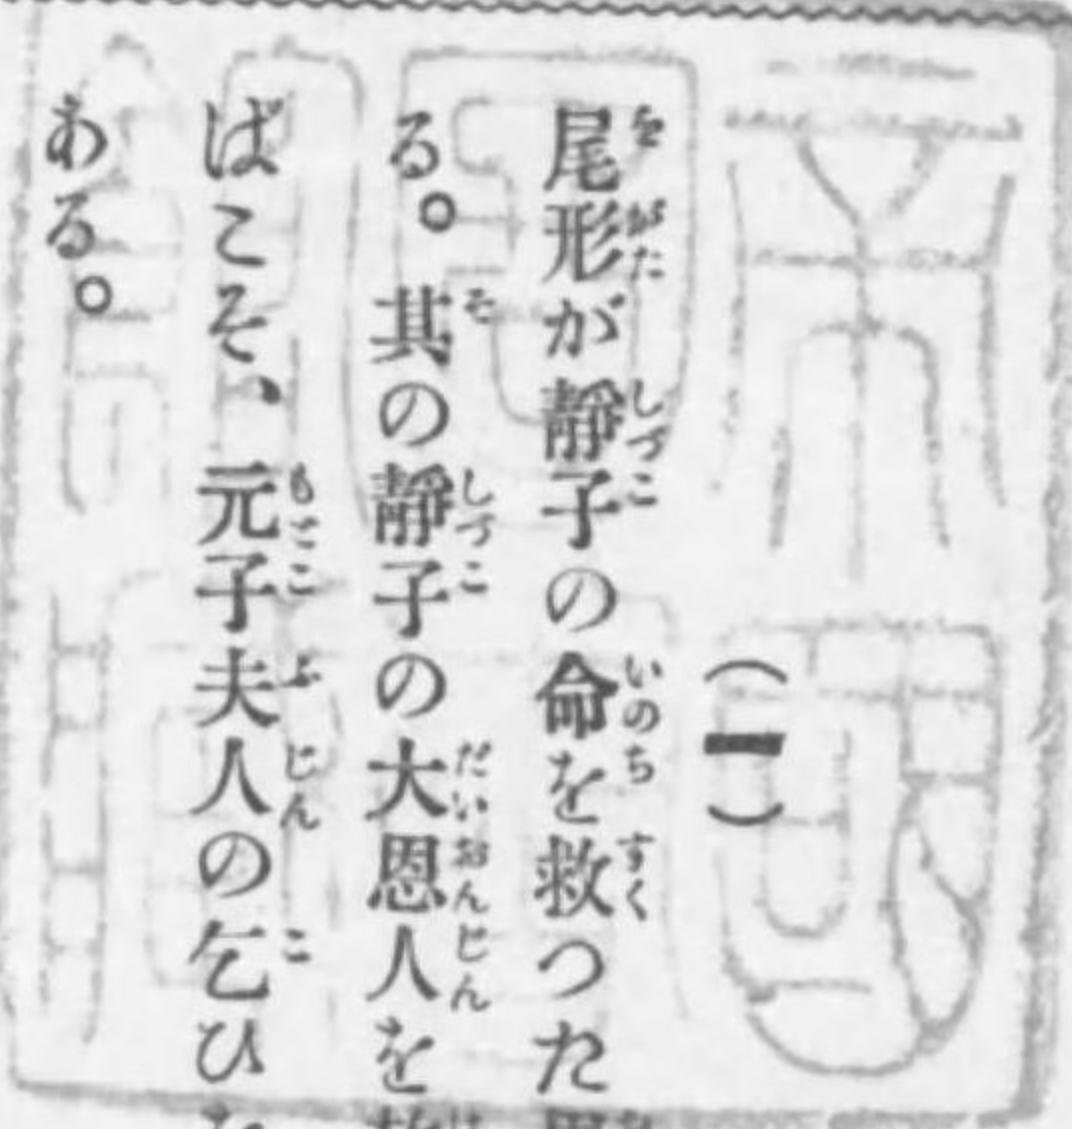 (一)
尾形が靜子の命を救つた
る。其の靜子の大恩人を
ばこそ、元子夫人の乞ひ
ある。